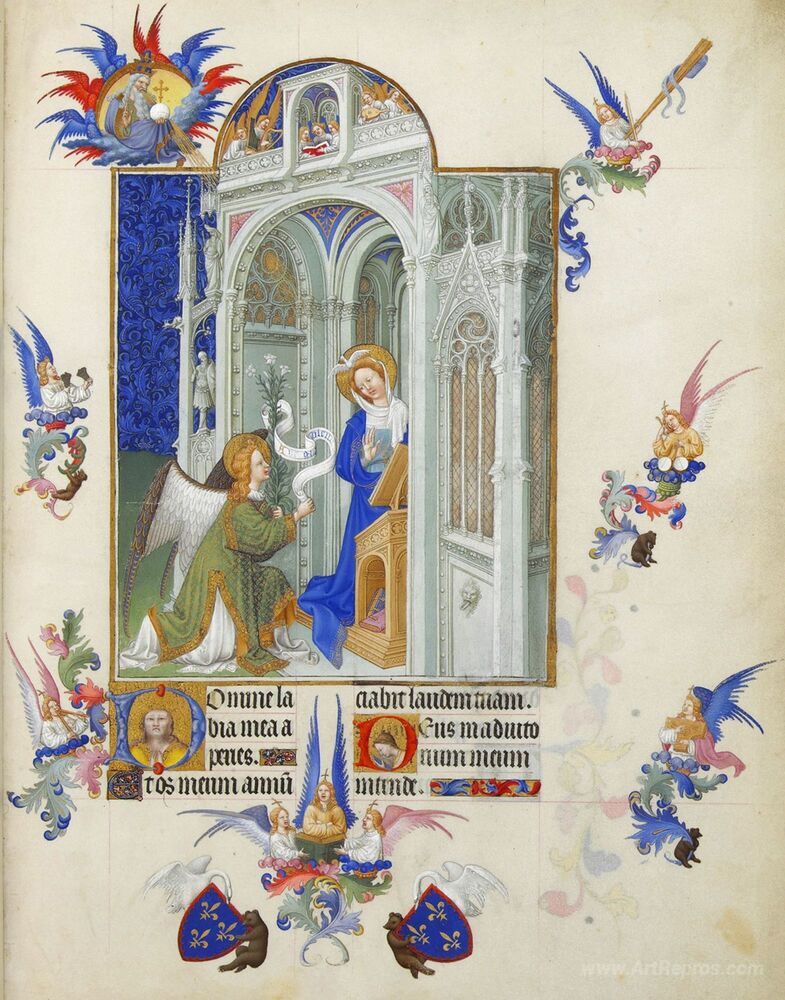 Domine la
bia mea a
peries.
Et os meum annū
ciabit laudem tuam.
Deus in adiuto
rium meum
intende.
www.ArtRepros.com